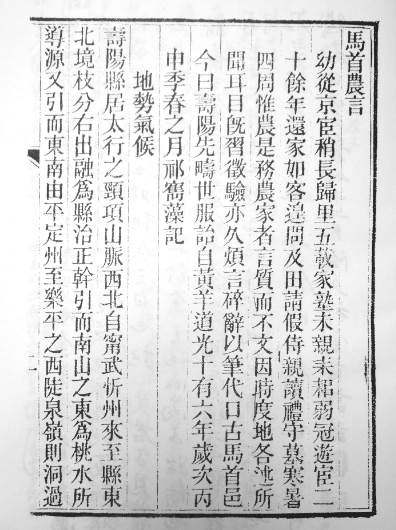 馬首農言
幼從京宦稍長歸里五載家塾未親耒耜弱冠遊宦二
十餘年還家如客遑問及田請假侍親讀禮守墓寒暑
四周惟農是務農家者言質而不文因時度地各述所
聞耳目旣習徵驗亦久煩言碎辭以筆代口古馬首邑
今曰壽陽先疇世服詒自黃羊道光十有六年歲次丙
申季春之月祁寯藻記
地勢氣候
壽陽縣居太行之頸項山脈西北自甯武忻州來至縣東
北境枝分右出融爲縣治正幹引而南山之東爲桃水所
導源又引而東南由平定州至樂平之西陡泉嶺則洞過